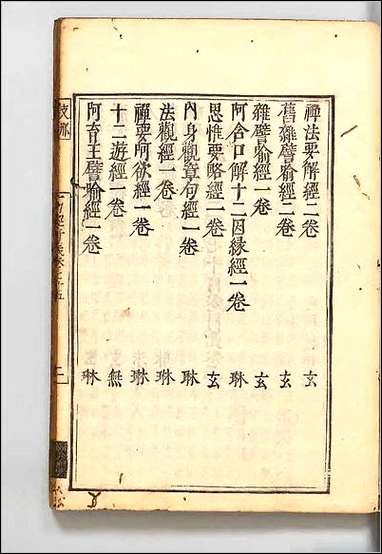 禪法要解經二卷 玄
舊雜譬喻經二卷 玄
雜譬喻經一卷 玄
阿含口解十二因緣經一卷 琳
思惟要略經一卷 玄
內身觀章句經一卷 琳
法觀經一卷 琳
禪要呵欲經一卷 琳
十二遊經一卷 無
阿育王譬喻經一卷 琳